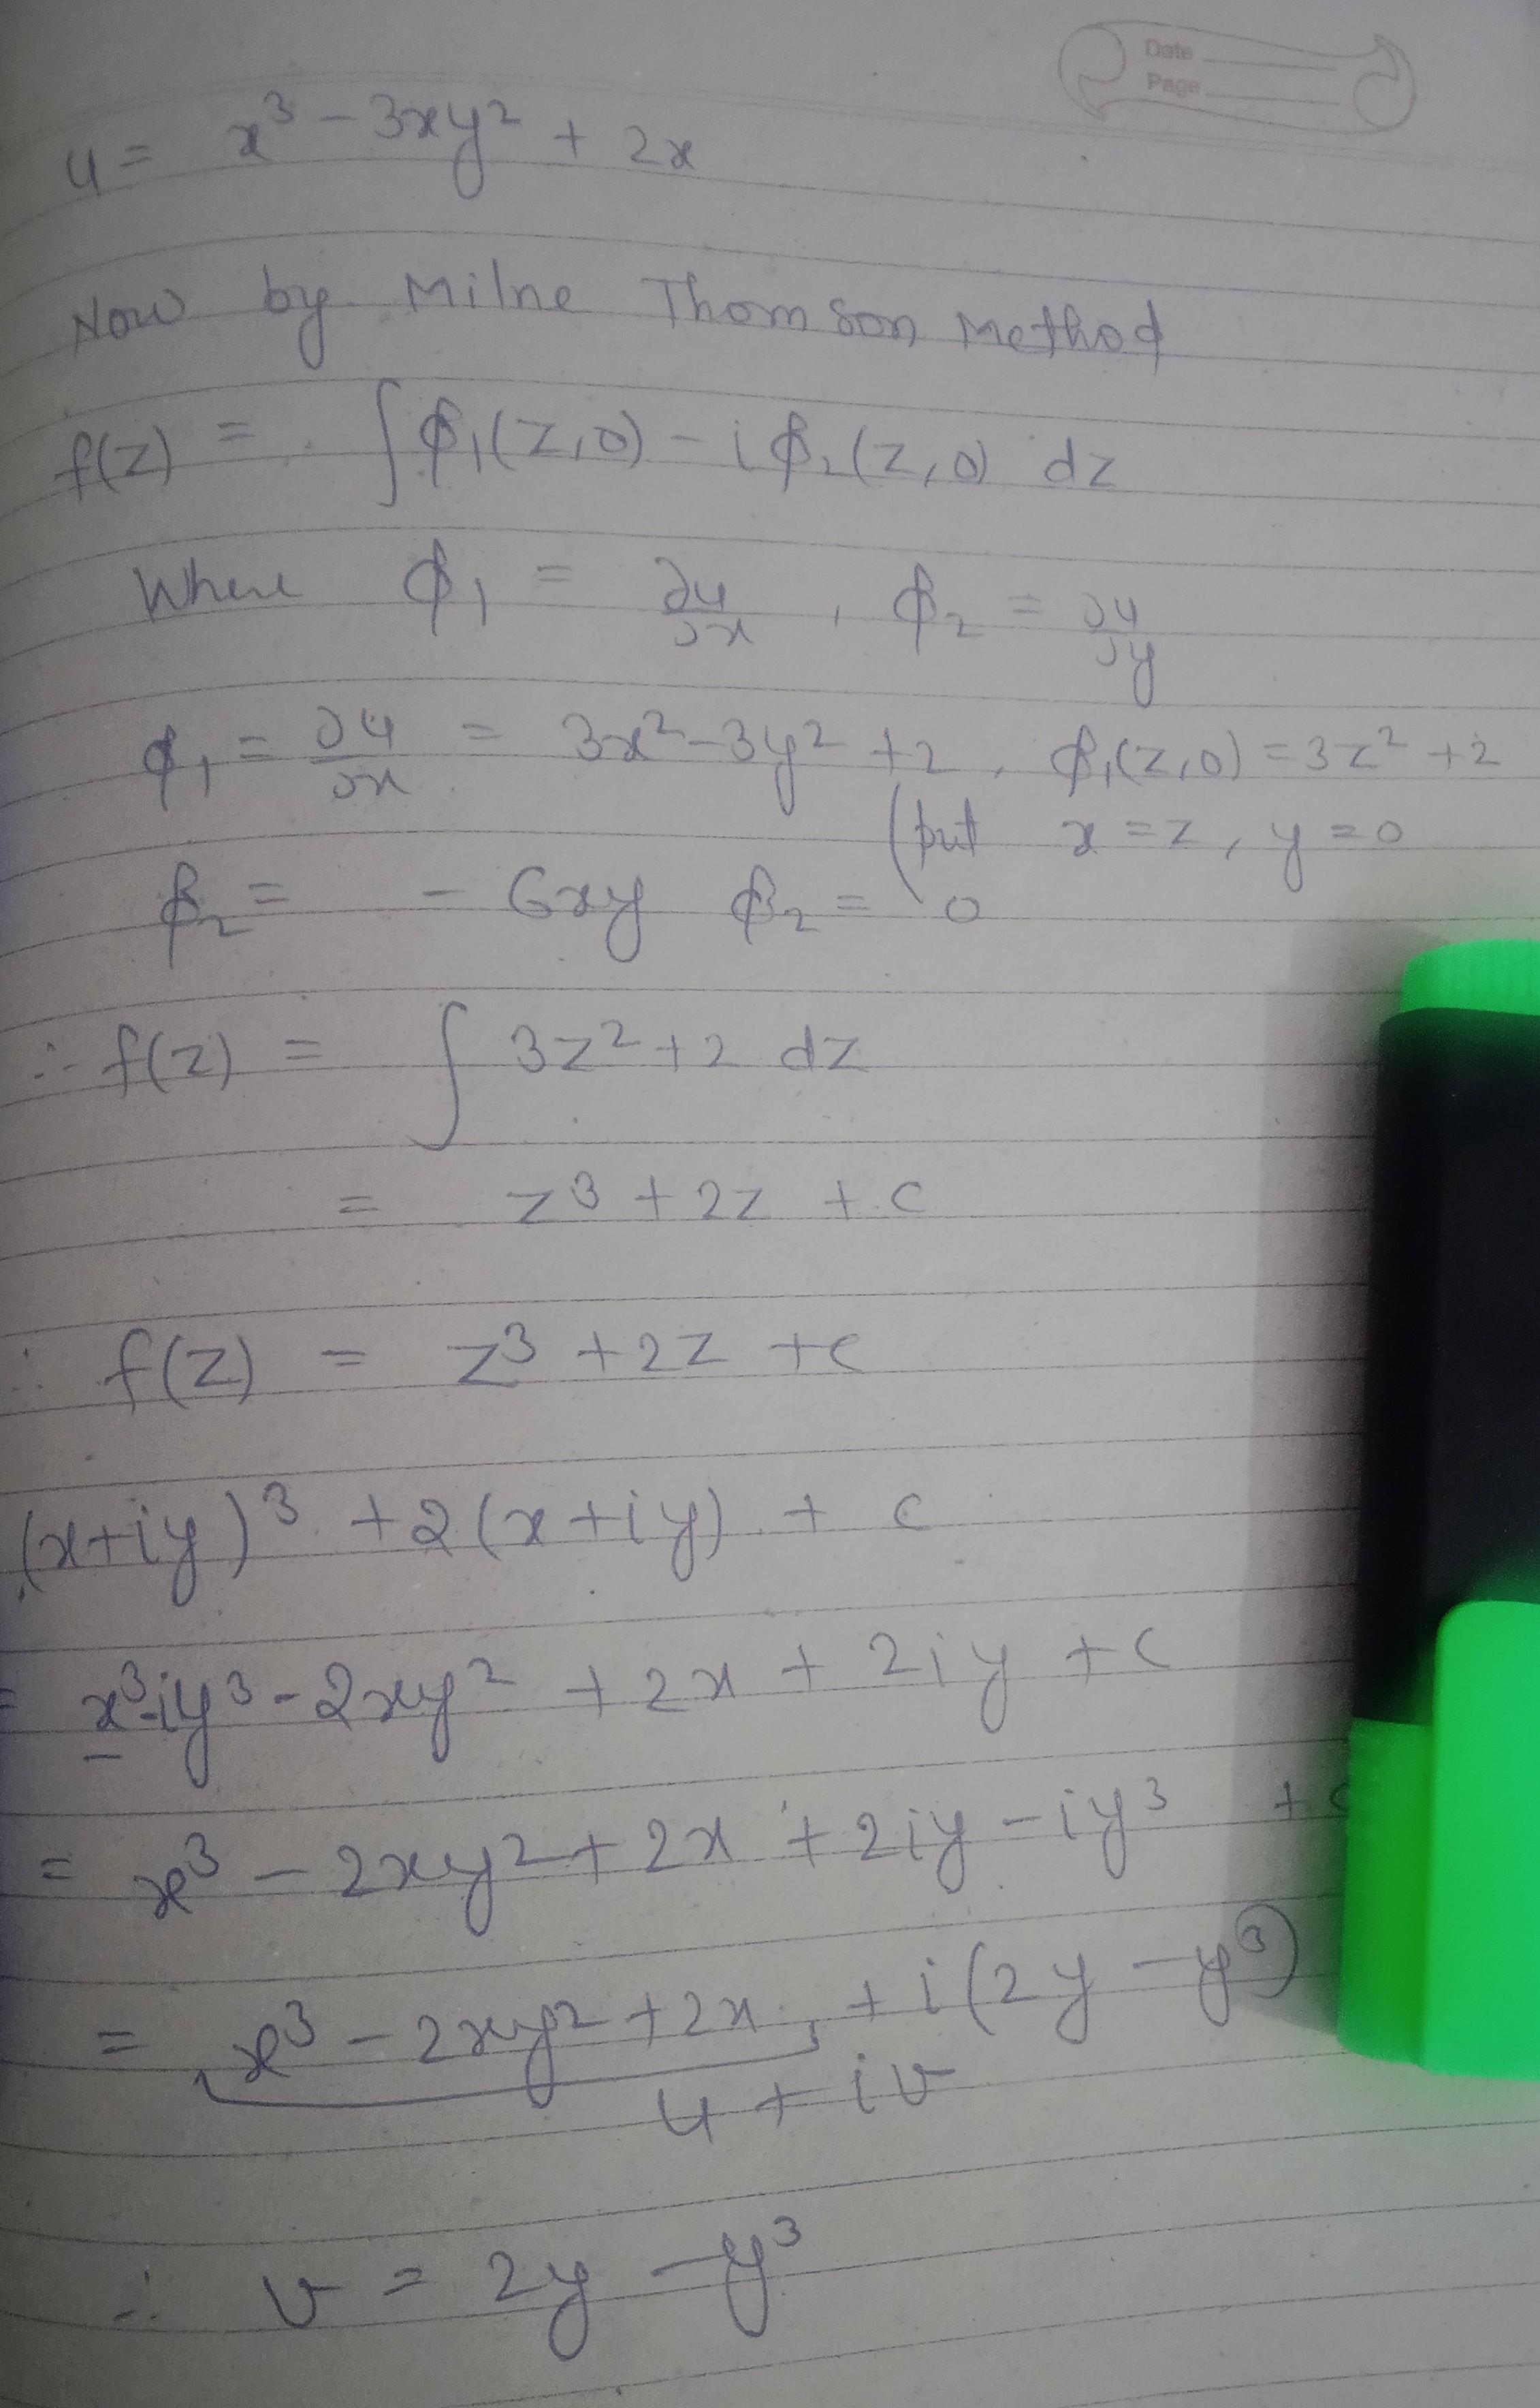 Date
Page
u = x³ - 3xy² + 2x
Now by Milne Thomson Method
f(z) = ∫ϕ₁(z,0) - iϕ₂(z,0) dz
Where ϕ₁ = ∂u/∂x , ϕ₂ = ∂u/∂y
ϕ₁ = ∂u/∂x = 3x² - 3y² + 2, ϕ₁(z,0) = 3z² + 2
(put x = z, y = 0
ϕ₂ = - 6xy ϕ₂ = 0
∴ f(z) = ∫ 3z² + 2 dz
= z³ + 2z + c
∴ f(z) = z³ + 2z + c
(x+iy)³ + 2(x+iy) + c
= x³-iy³ - 2xy² + 2x + 2iy + c
= x³ - 2xy² + 2x + 2iy - iy³ + c
= x³ - 2xy² + 2x + i(2y - y³)
u + iv
∴ v = 2y - y³